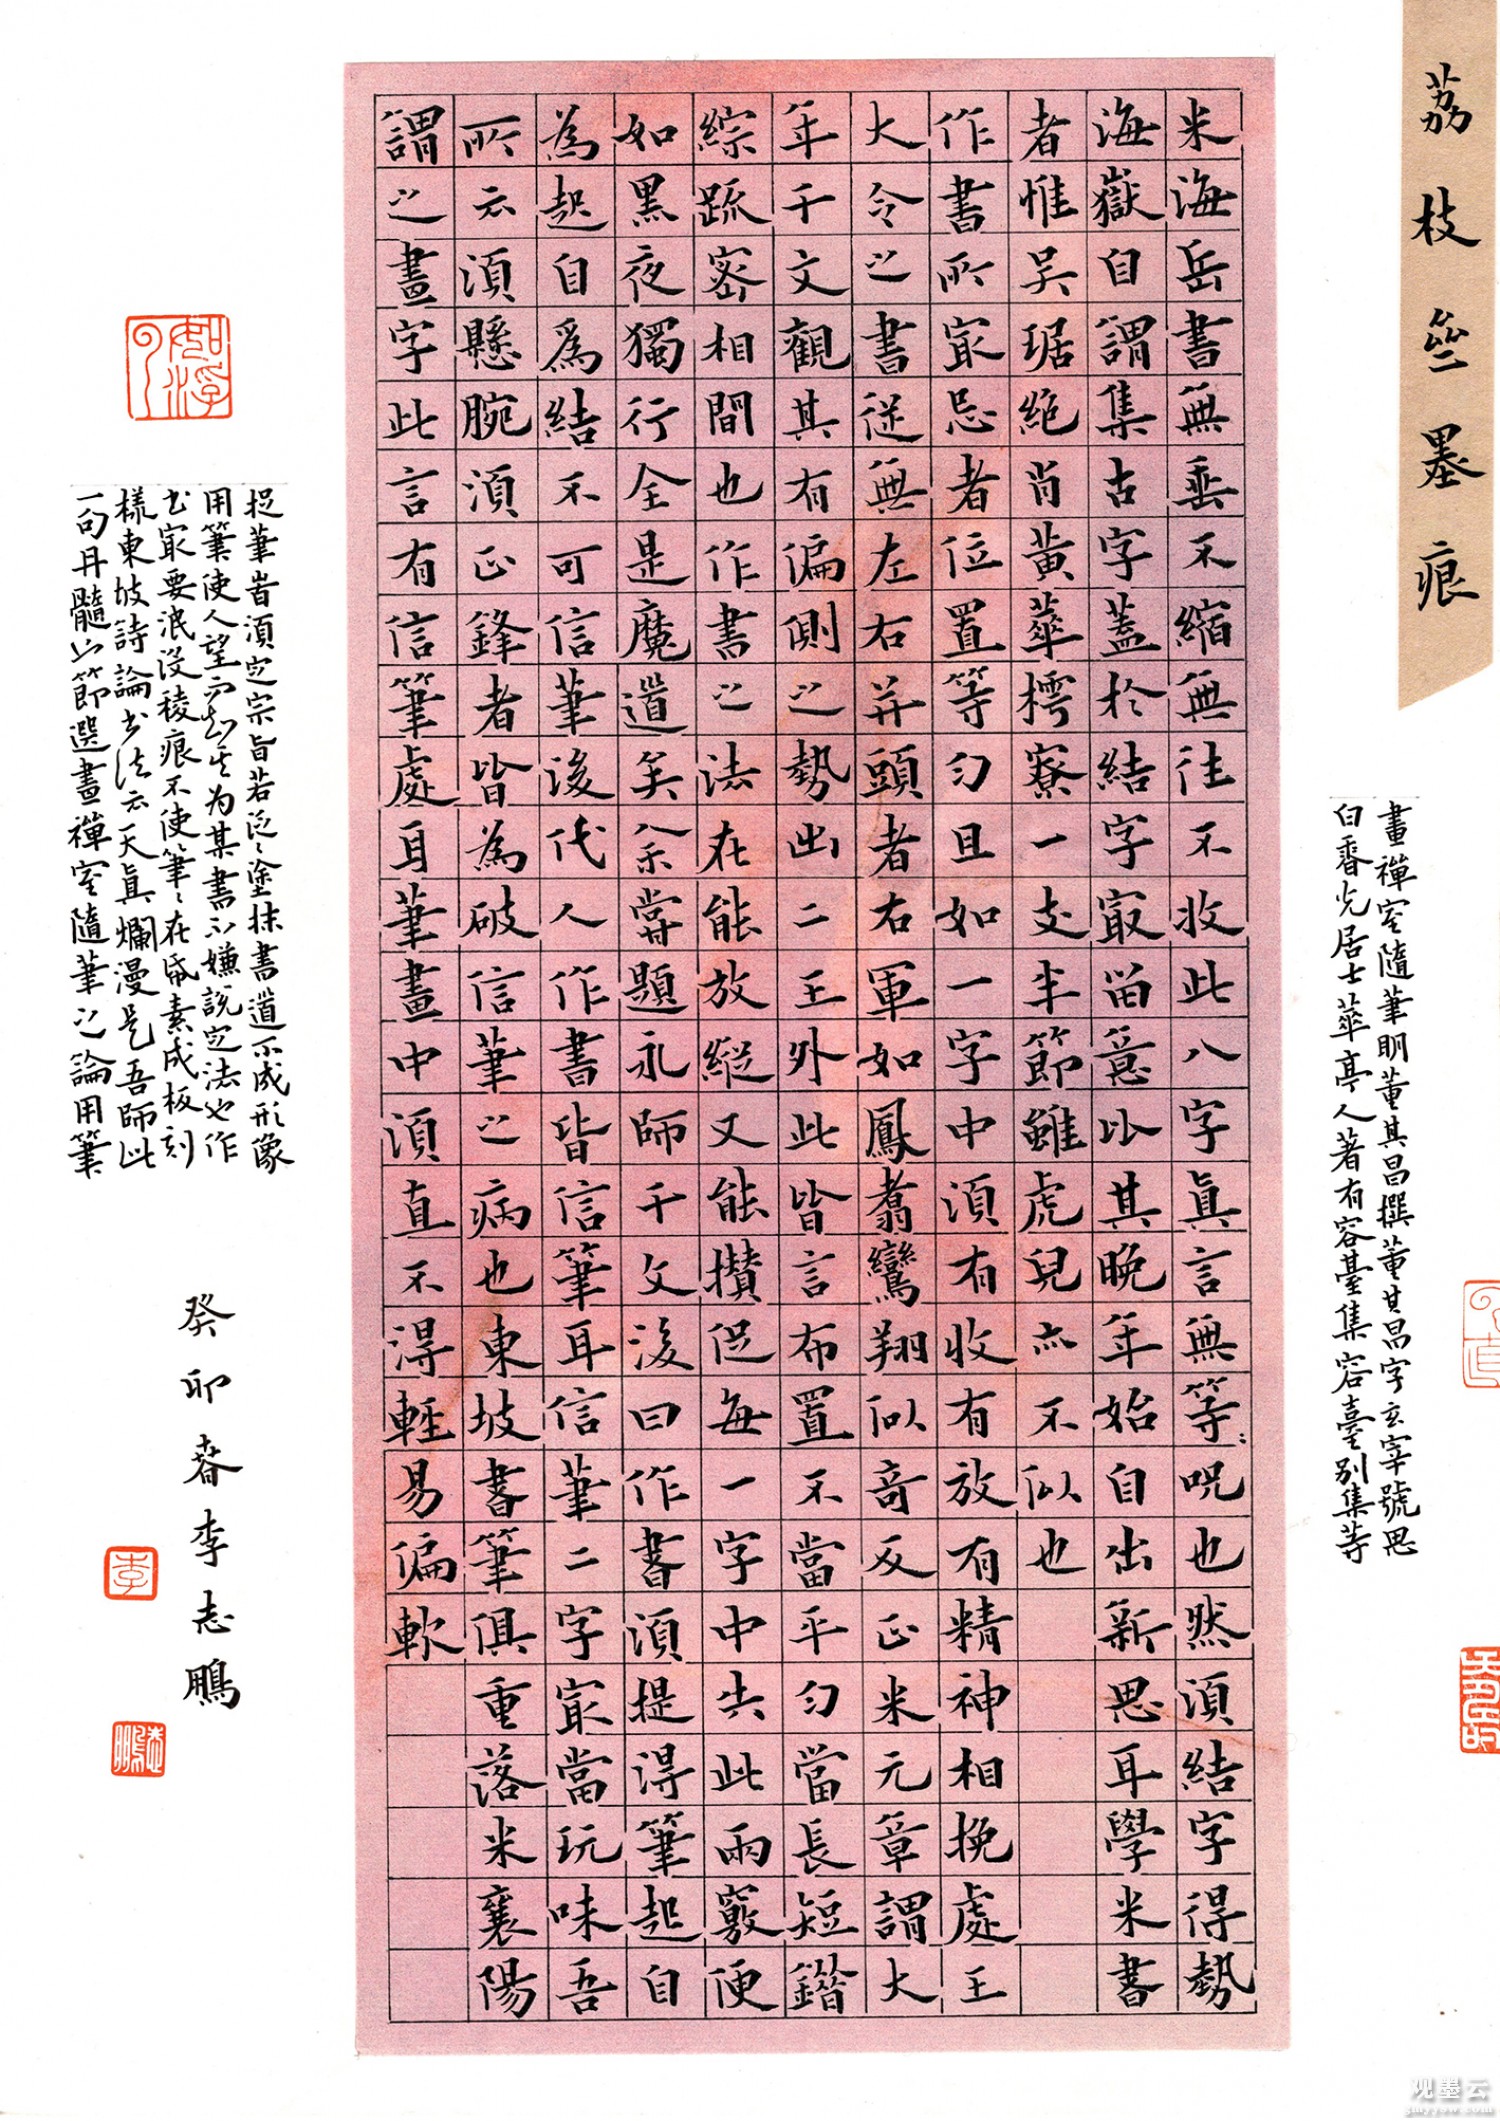 荔枝㘴墨痕
畫禪室隨筆明董其昌撰董其昌字玄宰號思
白香光居士華亭人著有容臺集容臺別集等
米海岳書無垂不縮無往不收此八字真言無等等呪也然須結字得勢
海嶽自謂集古字蓋於結字最留意比其晚年始自出新思耳學米書
者惟吳琚絕肖黃華樗寮一支半節雖虎兒亦不似也
作書所最忌者位置等勻且如一字中須有收有放有精神相挽處王
大令之書從無左右並頭者右軍如鳳翥鸞翔似奇反正米元章謂大
年千文觀其有偏側之勢出二王外此皆言布置不當平勻當長短錯
綜疏密相間也作書之法在能放縱又能攢促每一字中失此兩竅便
如黑夜獨行全是魔道矣余嘗題永師千文後曰作書須提得筆起自
為起自為結不可信筆後代人作書皆信筆耳信筆二字最當玩味吾
所云須懸腕須正鋒者皆為破信筆之病也東坡書筆俱重落米襄陽
謂之畫字此言有信筆處耳筆畫中須直不得輕易偏軟
捉筆皆須定宗旨若泛泛塗抹書道不成形像
用筆使人望而知其为某書不嫌說定法也作
書最要泯沒稜痕不使筆筆在紙素成板刻
樣東坡詩論書法云天真爛漫是吾師此
一句丹髓也節選畫禪室隨筆之論用筆
癸卯春李志鵬
李
志鵬
观墨云